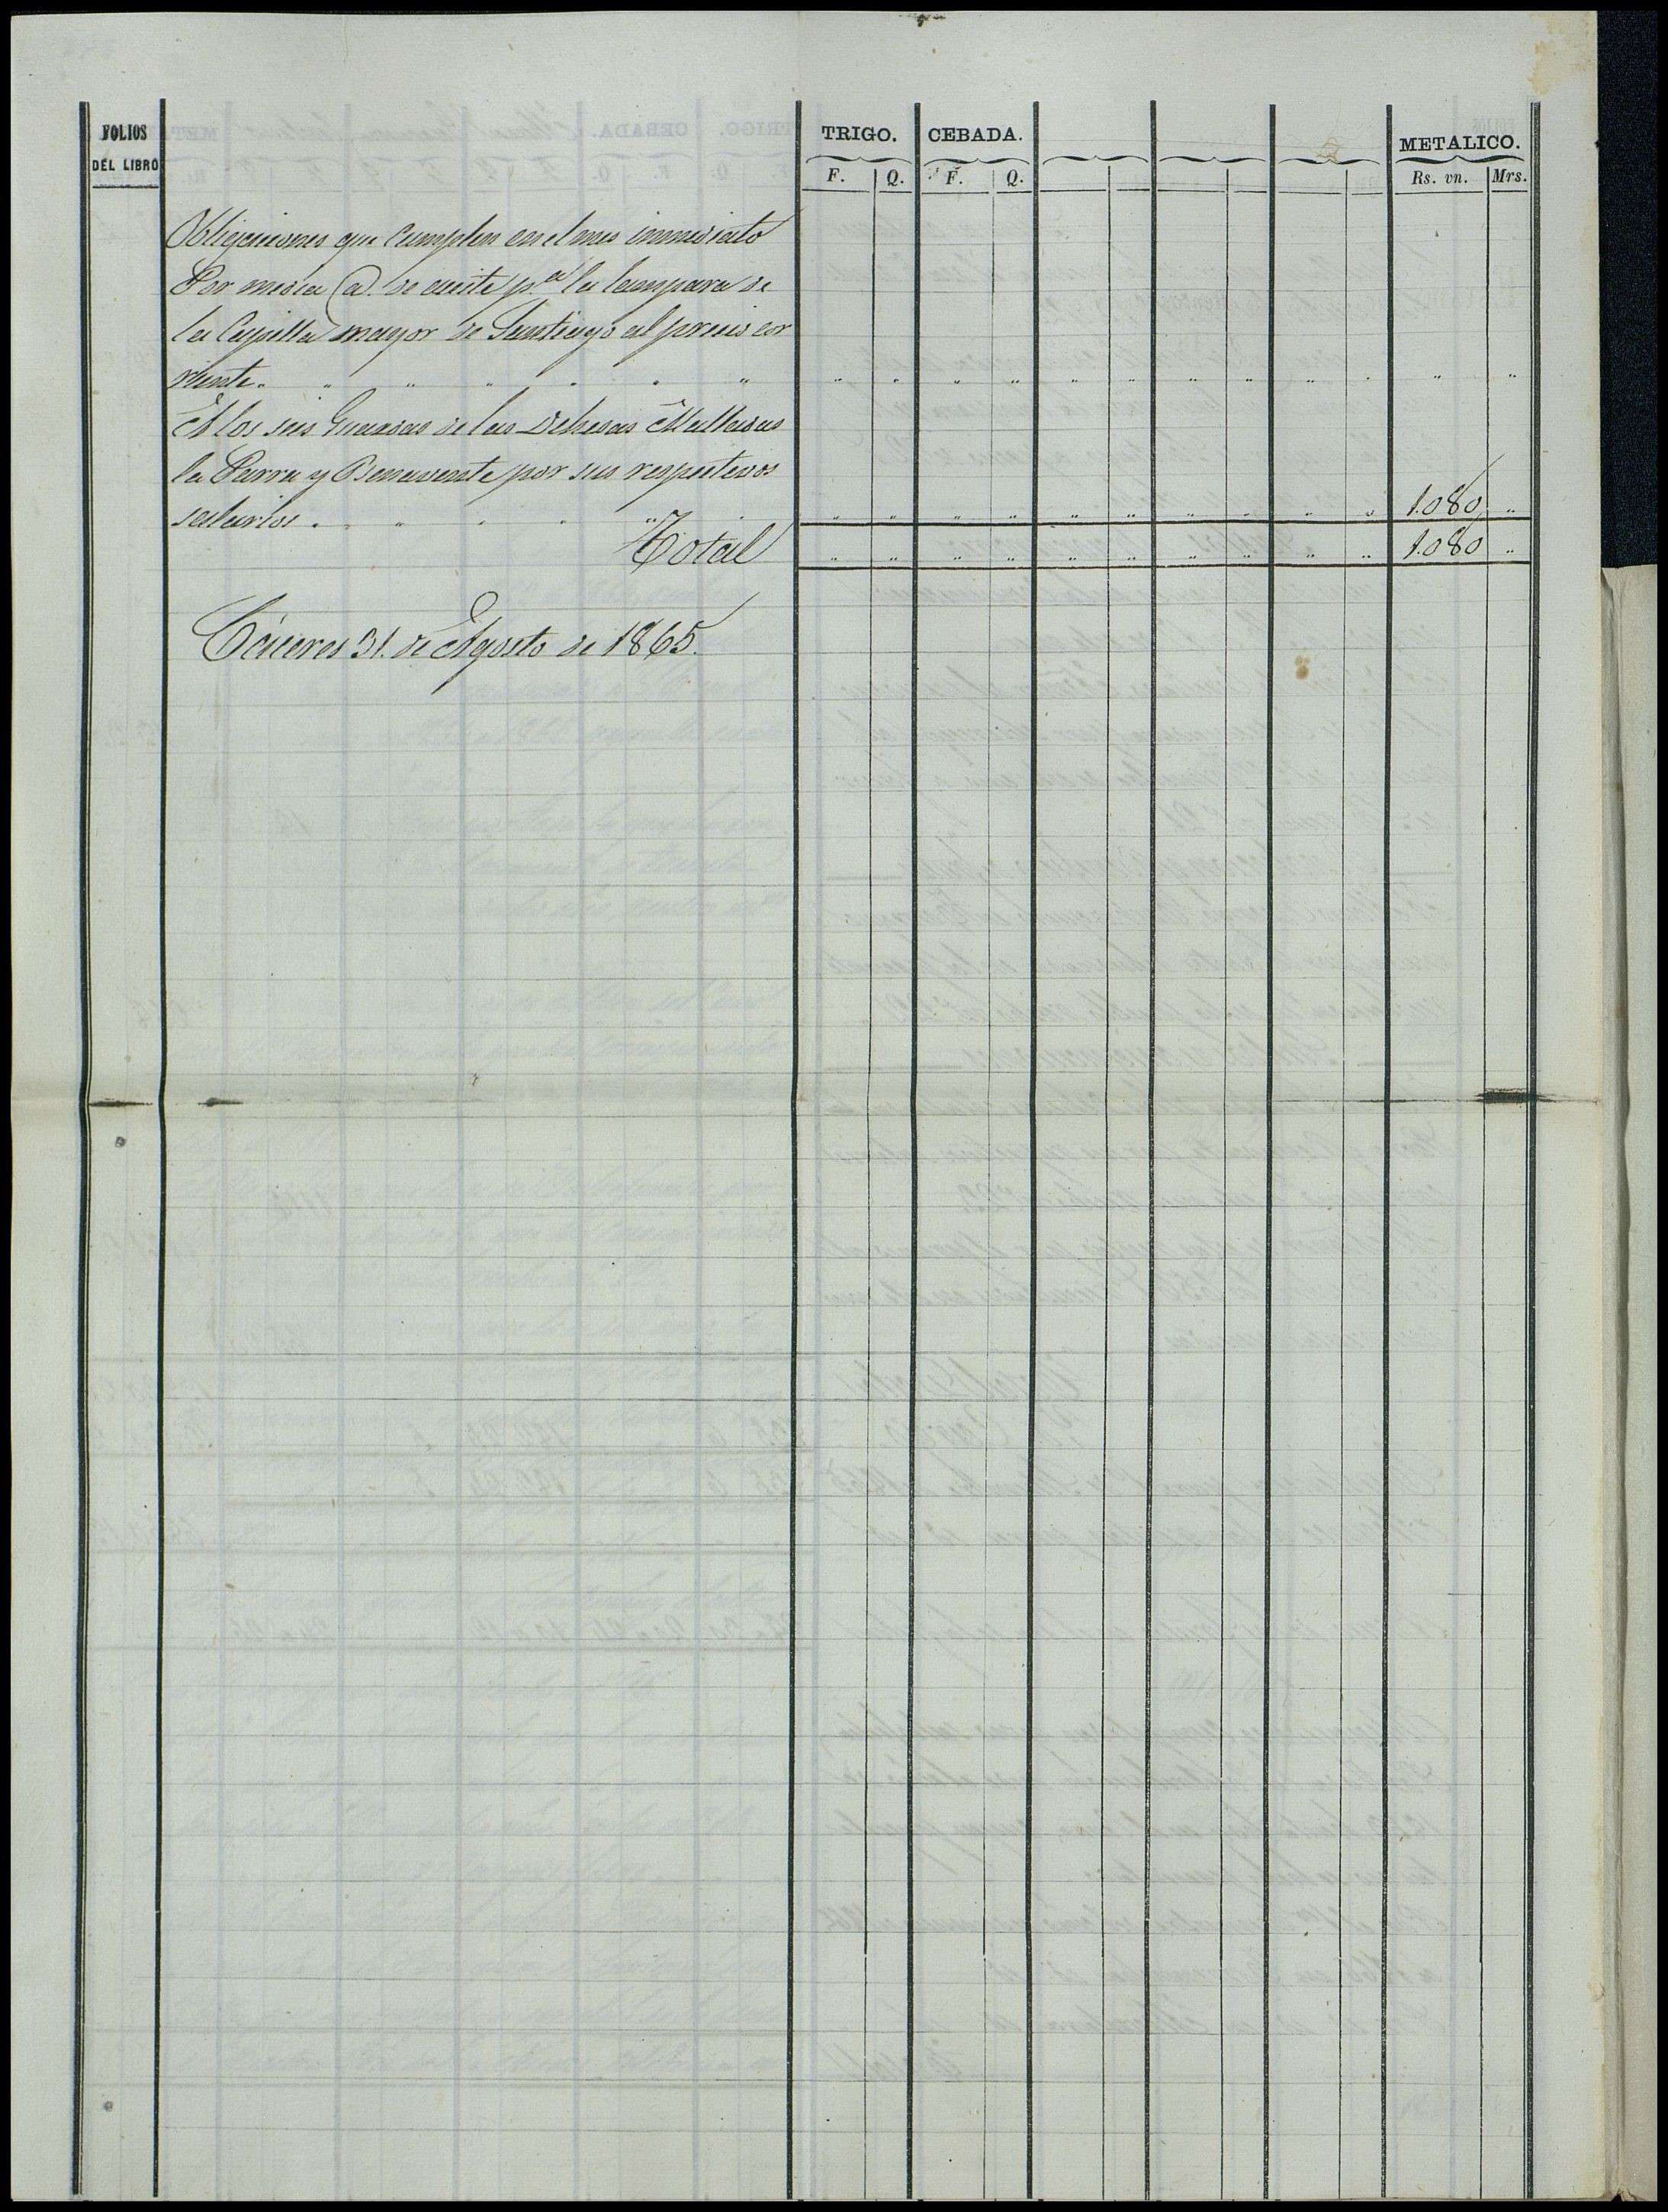 FOLIOS
DEL LIBRO
TRIGO. CEBADA. METALICO.
F. Q. F. Q. Rs. vn. Mrs.
Obligaciones que Cumplen en el mes inmediato
Por media @. de aceite p.ª la lampara de
la Capilla mayor de Santiago al precio cor
riente. " " " " " " " " " " " " " " " " " "
A los seis Guardas de las Dehesas Malladas
la Parra y Benavente por sus respectivos
salarios. " " " " " " " " " " " " " " 1.080 "
Total " " " " " " " " " " 1.080 "
Cáceres 31. de Agosto de 1865.